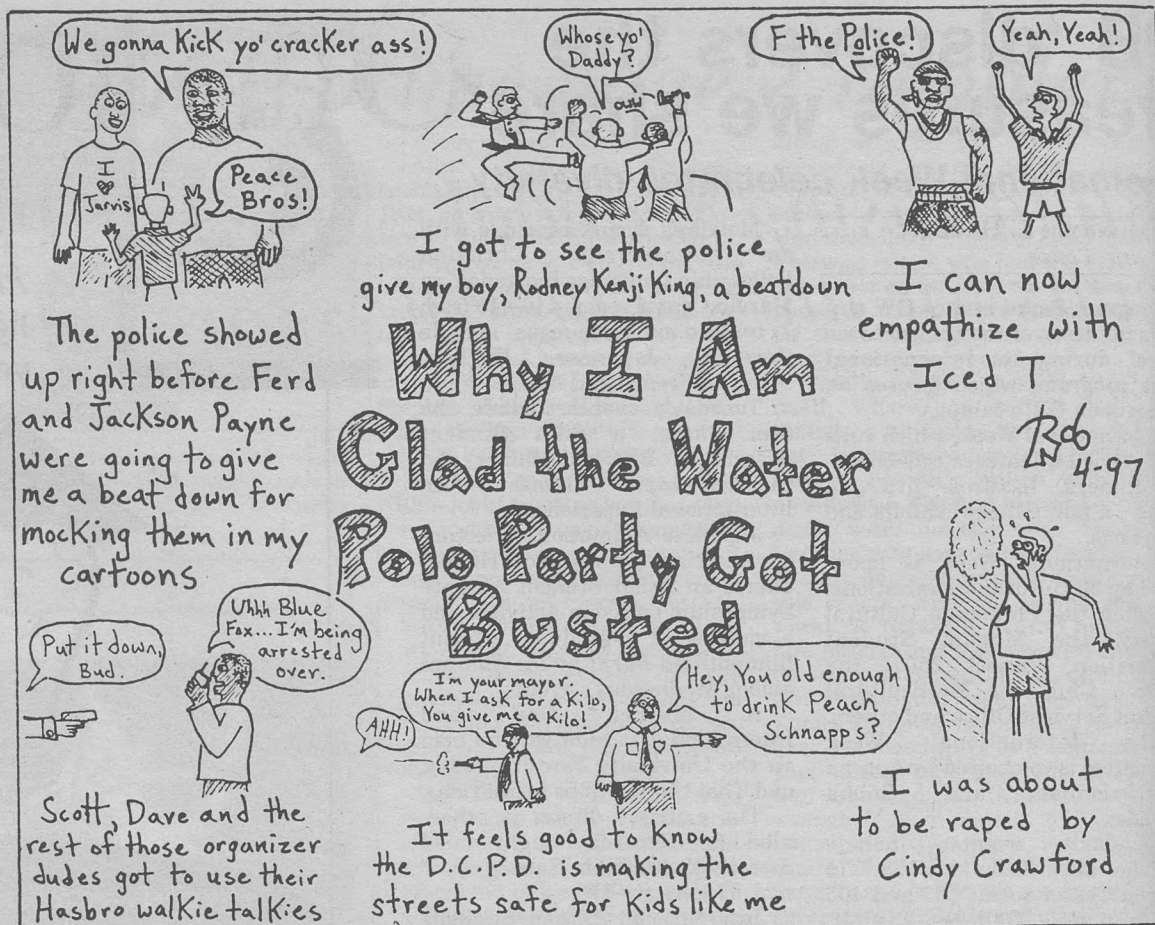 We gonna kick yo' cracker ass!
I
♥
Jarvis
Peace
Bros!
The police showed
up right before Ferd
and Jackson Payne
were going to give
me a beat down for
mocking them in my
cartoons
Whose yo'
Daddy?
OWW
I got to see the police
give my boy, Rodney Kenji King, a beatdown
F the Police!
Yeah, Yeah!
I can now
empathize with
Iced T
Rob
4-97
Why I Am
Glad the Water
Polo Party Got
Busted
Put it down,
Bud.
Uhhh Blue
Fox... I'm being
arrested
over.
Scott, Dave and the
rest of those organizer
dudes got to use their
Hasbro walkie talkies
AHH!
I'm your mayor.
When I ask for a Kilo,
You give me a Kilo!
Hey, You old enough
to drink Peach
Schnapps?
It feels good to know
the D.C.P.D. is making the
streets safe for kids like me
I was about
to be raped by
Cindy Crawford